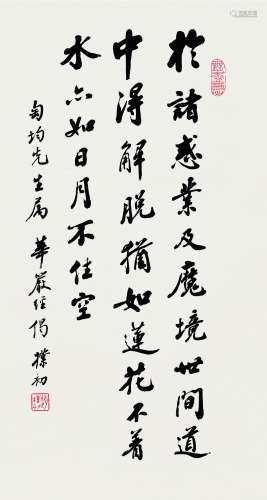 於諸惑業及魔境世間道
中得解脫猶如蓮花不着
水亦如日月不住空
均先生属 華嚴經偈 樸初